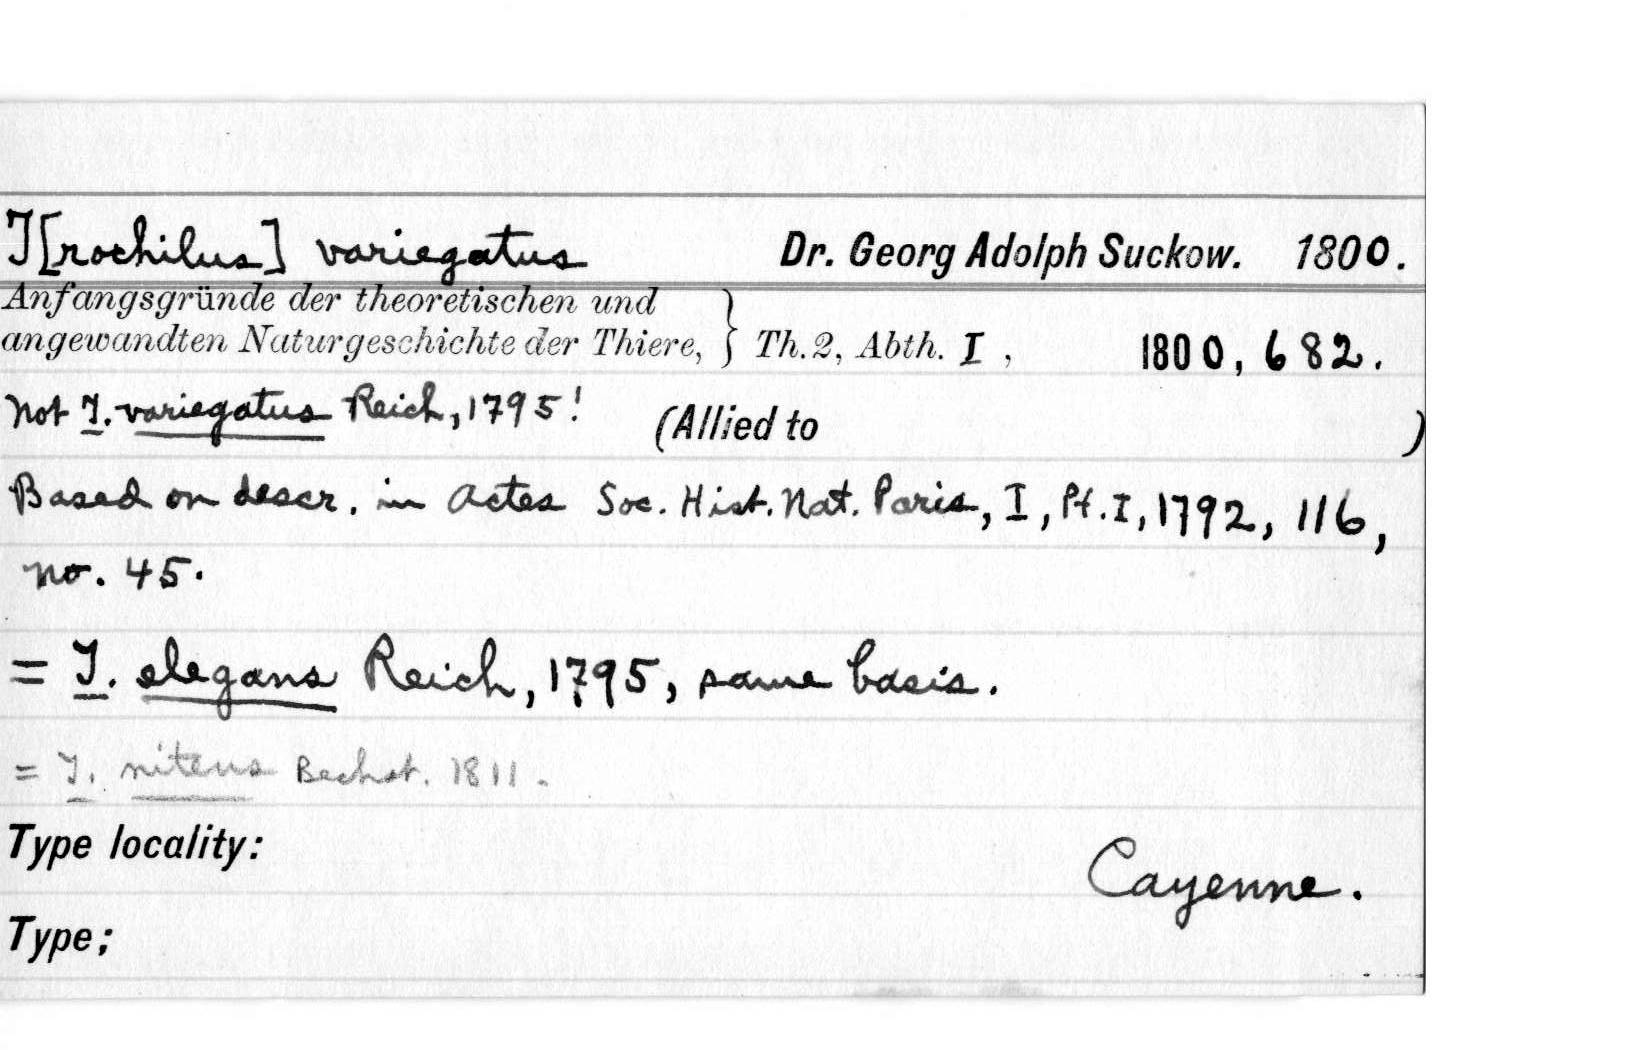 T[rochilus] variegatus Dr. Georg Adolph Suckow. 1800.
Anfangsgründe der theoretischen und
angewandten Naturgeschichte der Thiere, } Th. 2, Abth. I , 1800, 682.
Not T. variegatus Reich, 1795! (Allied to )
Based on descr. in Actes Soc. Hist. Nat. Paris, I, Pt. I, 1792, 116,
no. 45.
= T. elegans Reich, 1795, same basis.
= T. nitens Bechst. 1811.
Type locality:
Cayenne.
Type;